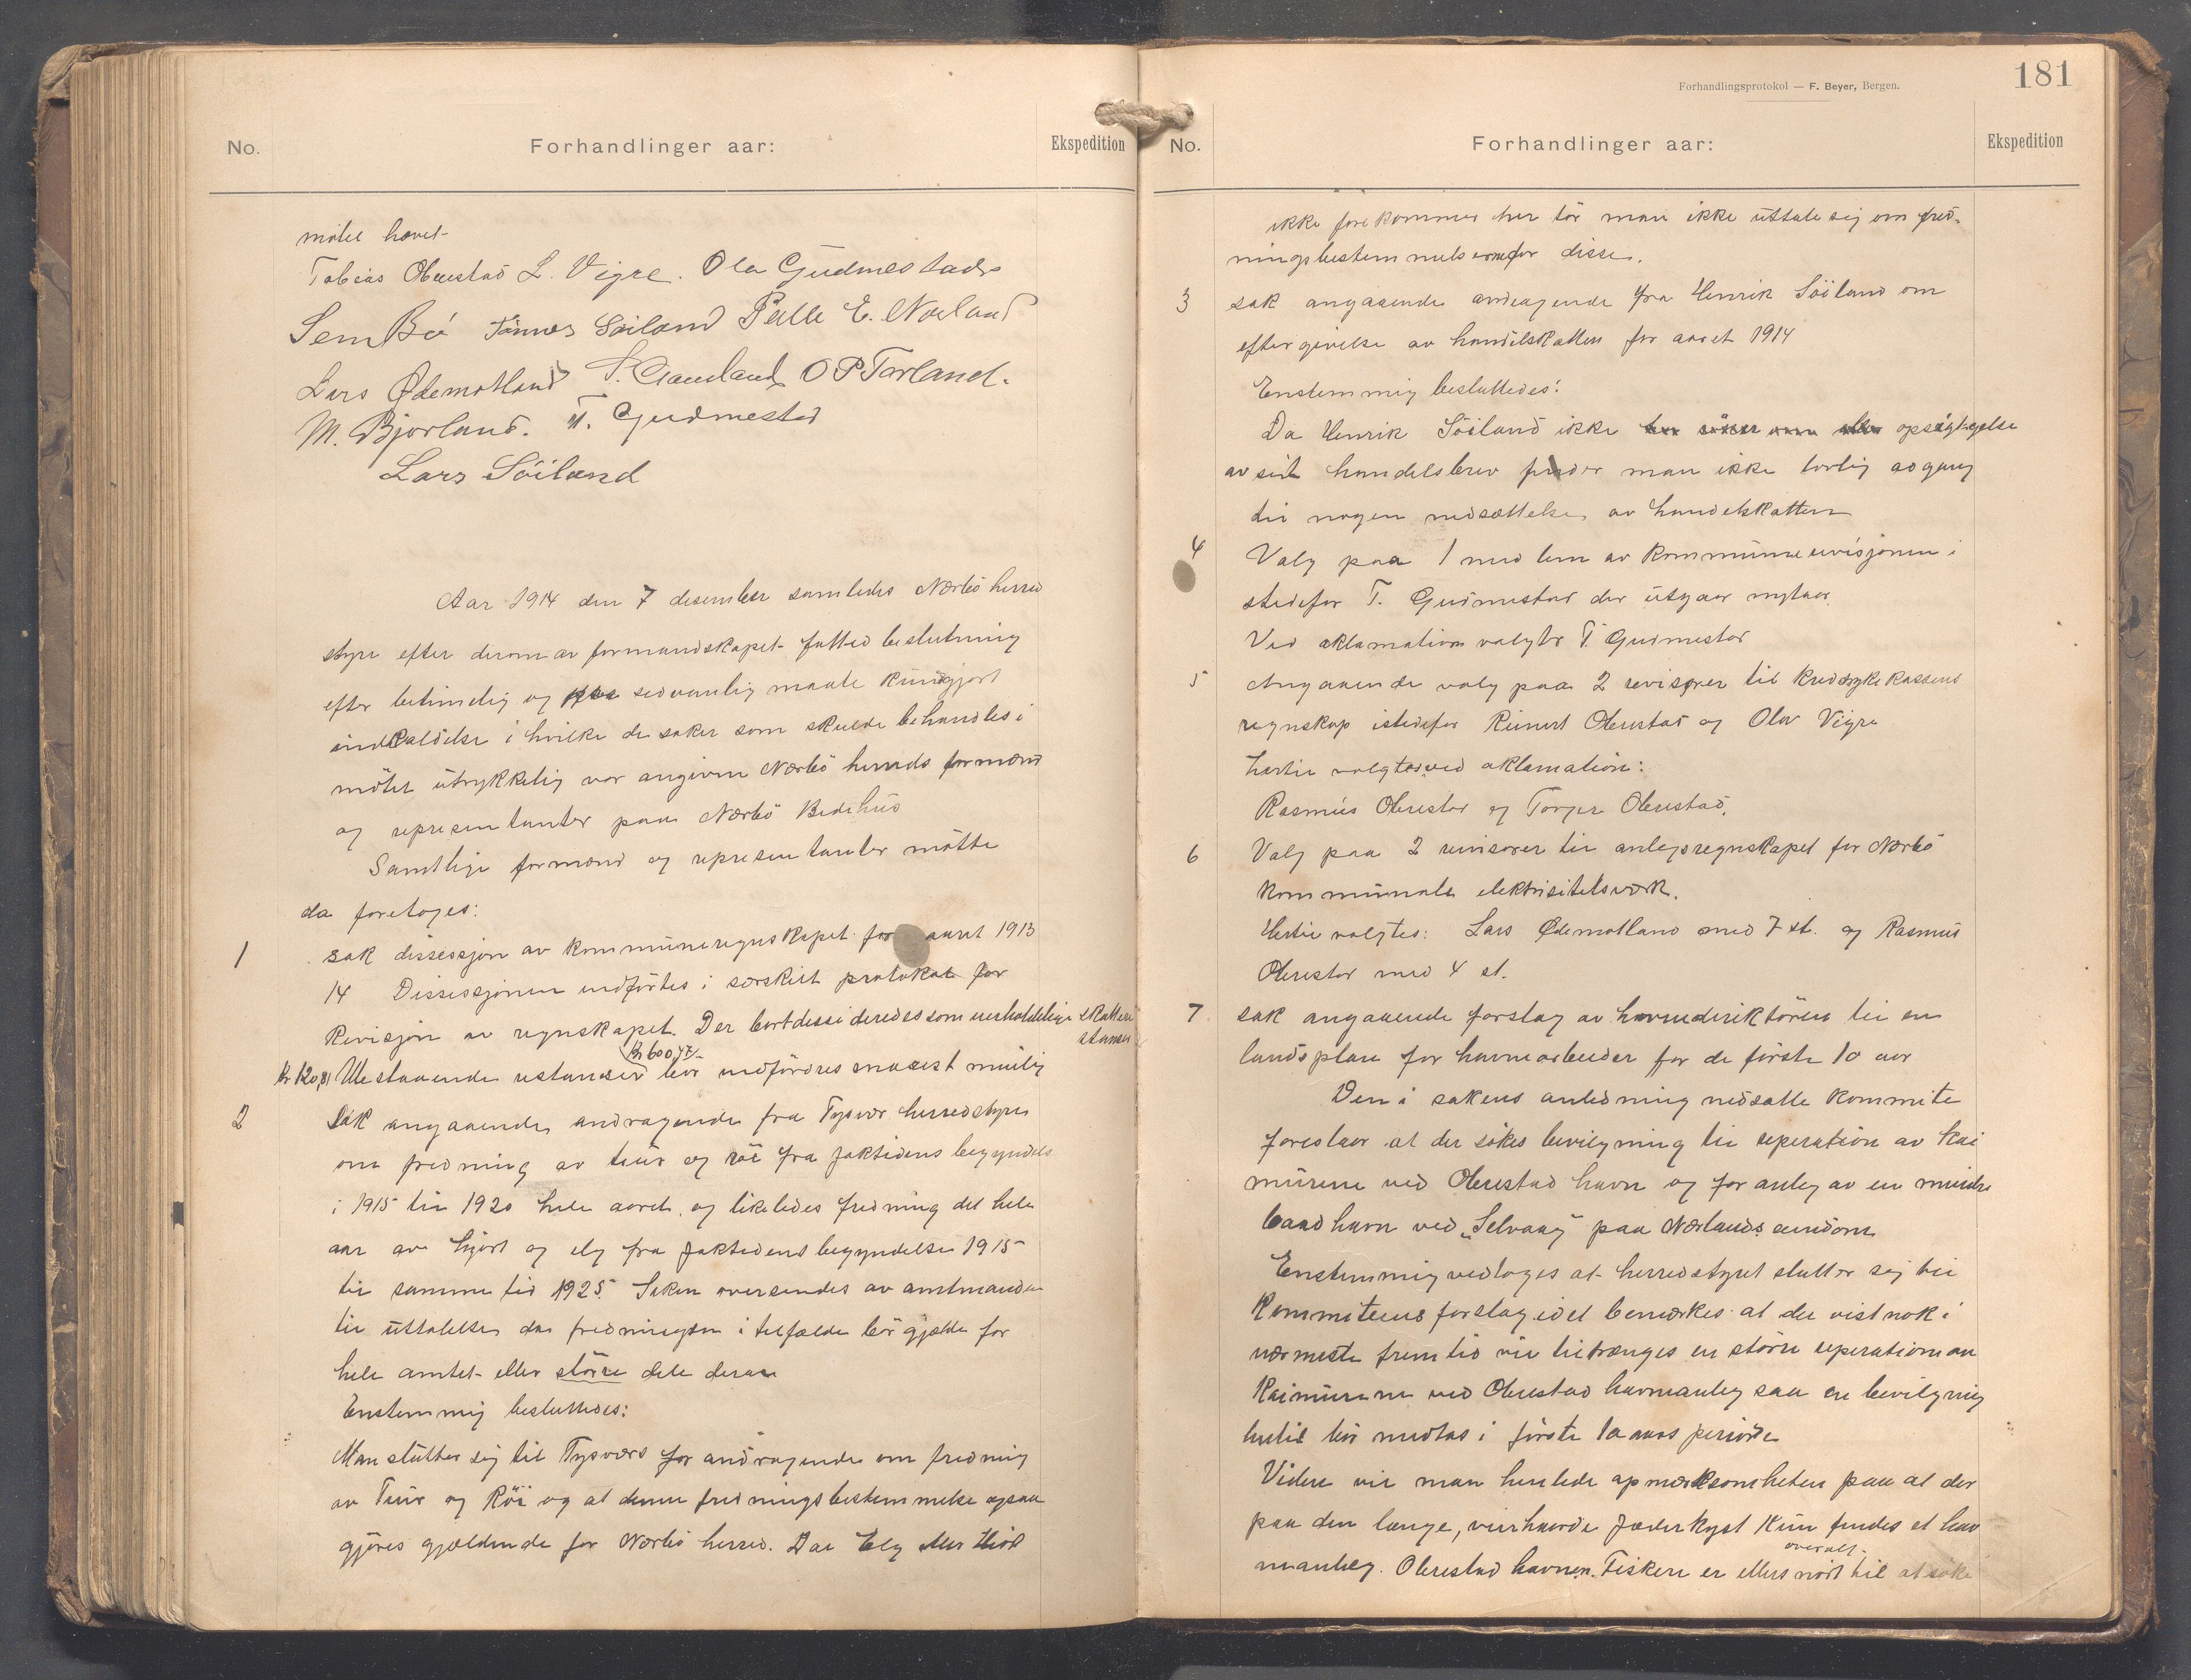 No.
Forhandlinger aar:
Ekspedition
møtet hævet-
Tobias Obrestad L. Vigre. Ola Gudmestad
Sem Bö Tönnes Söiland Palle E. Norland
Lars Ødemotland S. Gauland O P Tarland.
M. Bjorland. T. Gudmestad
Lars Söiland
Aar 1914 den 7 desember samledes Nærbö herred
styre efter derom av formandskapet fatted beslutning
efter betimelig og paa sedvanlig maate kundgjort
indkaldelse i hvilke de saker som skulde behandles i
mötet utrykkelig var angiven Nærbö herreds formænd
og representanter paa Nærbö Bedehus
Samtlige formænd og representanter mötte
da foretoges:
1 sak dissesjon av kommuneregnskapet for aaret 1913
14 Dissesjonen indförtes i særskilt protokol for
Revisjon av regnskapet. Der bortdessideredes som uerholdelige skatter
kr 120,81 Utestaaende restanser kr 600,47 bör indfördres snarest mulig
2 Sak angaaende andragende fra Tysvær herredstyre
om fredning av tiur og röi fra jaktidens begyndels
i 1915 til 1920 hele aaret. og likeledes fredning det hele
aar av hjort og elg fra jaktidens begyndelse 1915
til samme tid 1925. Saken oversendes av amtmanden
til uttalelse da fredningen i tilfælde bör gjælde for
hele amtet eller större dele derav
Enstemmig besluttedes:
Man slutter sig til Tysværs for andragende om fredning
av Tiur og Röi og at denne fredningsbestemmelse ogsaa
gjöres gjældende for Nærbö herred. Da Elg eller Hiort
Forhandlingsprotokol — F. Beyer, Bergen.
181
No.
Forhandlinger aar:
Ekspedition
ikke forekommer her tör man ikke uttale sig om fred-
ningsbestemmelserne for disse.
3 sak angaaende andragende fra Henrik Söiland om
eftergivelse av handelskatten for aaret 1914
Enstemmig besluttedes:
Da Henrik Söiland ikke opsigtgelse
av sit handelsbrev finder man ikke lovlig adgang
til nogen nedsættelse av handelskatten
4 Valg paa 1 medlem av kommunerevisjonen i
stedefor T. Gudmestad der utgaar nytaar.
Ved aklamation valgtes T. Gudmestad
5 Angaaende valg paa 2 revisorer til Kredssykekassens
regnskap istedefor Reinert Obrestad og Olav Vigre
hertil valgtes ved aklamation:
Rasmus Obrestad og Torger Obrestad.
6 Valg paa 2 revisorer til anlegsregnskapet for Nærbö
kommunale elektrisitetsverk.
Hertil valgtes: Lars Ødemotland med 7 st. og Rasmus
Obrestad med 4 st.
7 sak angaaende forslag av havnedirektören til en
landsplan for havnearbeider for de förste 10 aar
Den i sakens anledning nedsatte kommite
foreslaar at der sökes bevilgning til reperation av kai
murene ved Obrestad havn og for anleg av en mindre
baadhavn ved „Selvaag" paa Nærlands eiendom
Enstemmig vedtoges at herredstyret slutter sig til
Kommiteens forslag idet bemerkes at der vistnok i
nærmeste fremtid vil tiltrænges en större reperation av
Kaimurene ved Obrestad havneanleg saa en bevilgning
hertil bör medtas i förste 10 aars periode
Videre vil man henlede opmerksomheten paa at der
paa den lange, veirhaarde Jæderkyst kun findes et hav
neanleg. Obrestad havnen. Fiskere er ellers overalt nödt til at söke